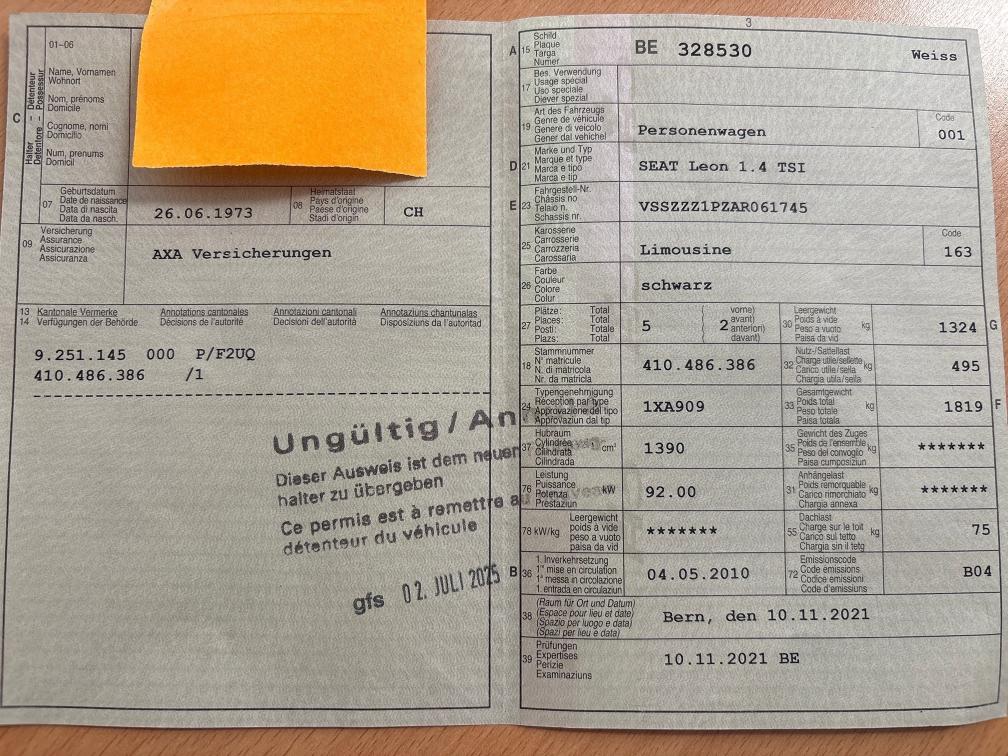 01-06
C
Halter – Détenteur
Detentore – Possessur
Name, Vornamen
Wohnort
Nom, prénoms
Domicile
Cognome, nomi
Domicilio
Num, prenums
Domicil
07
Geburtsdatum
Date de naissance
Data di nascita
Data da nasch.
26.06.1973
08
Heimatstaat
Pays d'origine
Paese d'origine
Stadi d'origin
CH
09
Versicherung
Assurance
Assicurazione
Assicuranza
AXA Versicherungen
13 Kantonale Vermerke Annotations cantonales Annotazioni cantonali Annotaziuns chantunalas
14 Verfügungen der Behörde Décisions de l'autorité Decisioni dell'autorità Disposiziuns da l'autoritad
9.251.145 000 P/F2UQ
410.486.386 /1
Ungültig / An
Dieser Ausweis ist dem neuen
halter zu übergeben
Ce permis est à remettre au
détenteur du véhicule
gfs 02. JULI 2025
3
A 15
Schild
Plaque
Targa
Numer
BE 328530 Weiss
17
Bes. Verwendung
Usage spécial
Uso speciale
Diever spezial
19
Art des Fahrzeugs
Genre de véhicule
Genere di veicolo
Gener dal vehichel
Personenwagen
Code
001
D 21
Marke und Typ
Marque et type
Marca e tipo
Marca e tip
SEAT Leon 1.4 TSI
E 23
Fahrgestell-Nr.
Châssis no
Telaio n.
Schassis nr.
VSSZZZ1PZAR061745
25
Karosserie
Carrosserie
Carrozzeria
Carossaria
Limousine
Code
163
26
Farbe
Couleur
Colore
Colur
schwarz
27
Plätze: Total
Places: Total
Posti: Totale
Plazs: Total
5
2
vorne)
avant)
anteriori)
davant)
30
Leergewicht
Poids à vide
Peso a vuoto
Paisa da vid
kg
1324
G
18
Stammnummer
N° matricule
N. di matricola
Nr. da matricla
410.486.386
32
Nutz-/Sattellast
Charge utile/sellette
Carico utile/sella
Chargia utila/sella
kg
495
24
Typengenehmigung
Réception par type
Approvazione del tipo
Approvaziun dal tip
1XA909
33
Gesamtgewicht
Poids total
Peso totale
Paisa totala
kg
1819
F
37
Hubraum
Cylindrée
Cilindrata
Cilindrada
cm³
1390
35
Gewicht des Zuges
Poids de l'ensemble
Peso del convoglio
Paisa cumposiziun
kg
*******
76
Leistung
Puissance
Potenza
Prestaziun
kW
92.00
31
Anhängelast
Poids remorquable
Carico rimorchiato
Chargia annexa
kg
*******
78 kW/kg
Leergewicht
poids à vide
peso a vuoto
paisa da vid
*******
55
Dachlast
Charge sur le toit
Carico sul tetto
Chargia sin il tetg
kg
75
B 36
1. Inverkehrsetzung
1re mise en circulation
1a messa in circolazione
1. entrada en circulaziun
04.05.2010
72
Emissionscode
Code émissions
Codice emissioni
Code d'emissiuns
B04
38
(Raum für Ort und Datum)
(Espace pour lieu et date)
(Spazio per luogo e data)
(Spazi per lieu e data)
Bern, den 10.11.2021
39
Prüfungen
Expertises
Perizie
Examinaziuns
10.11.2021 BE